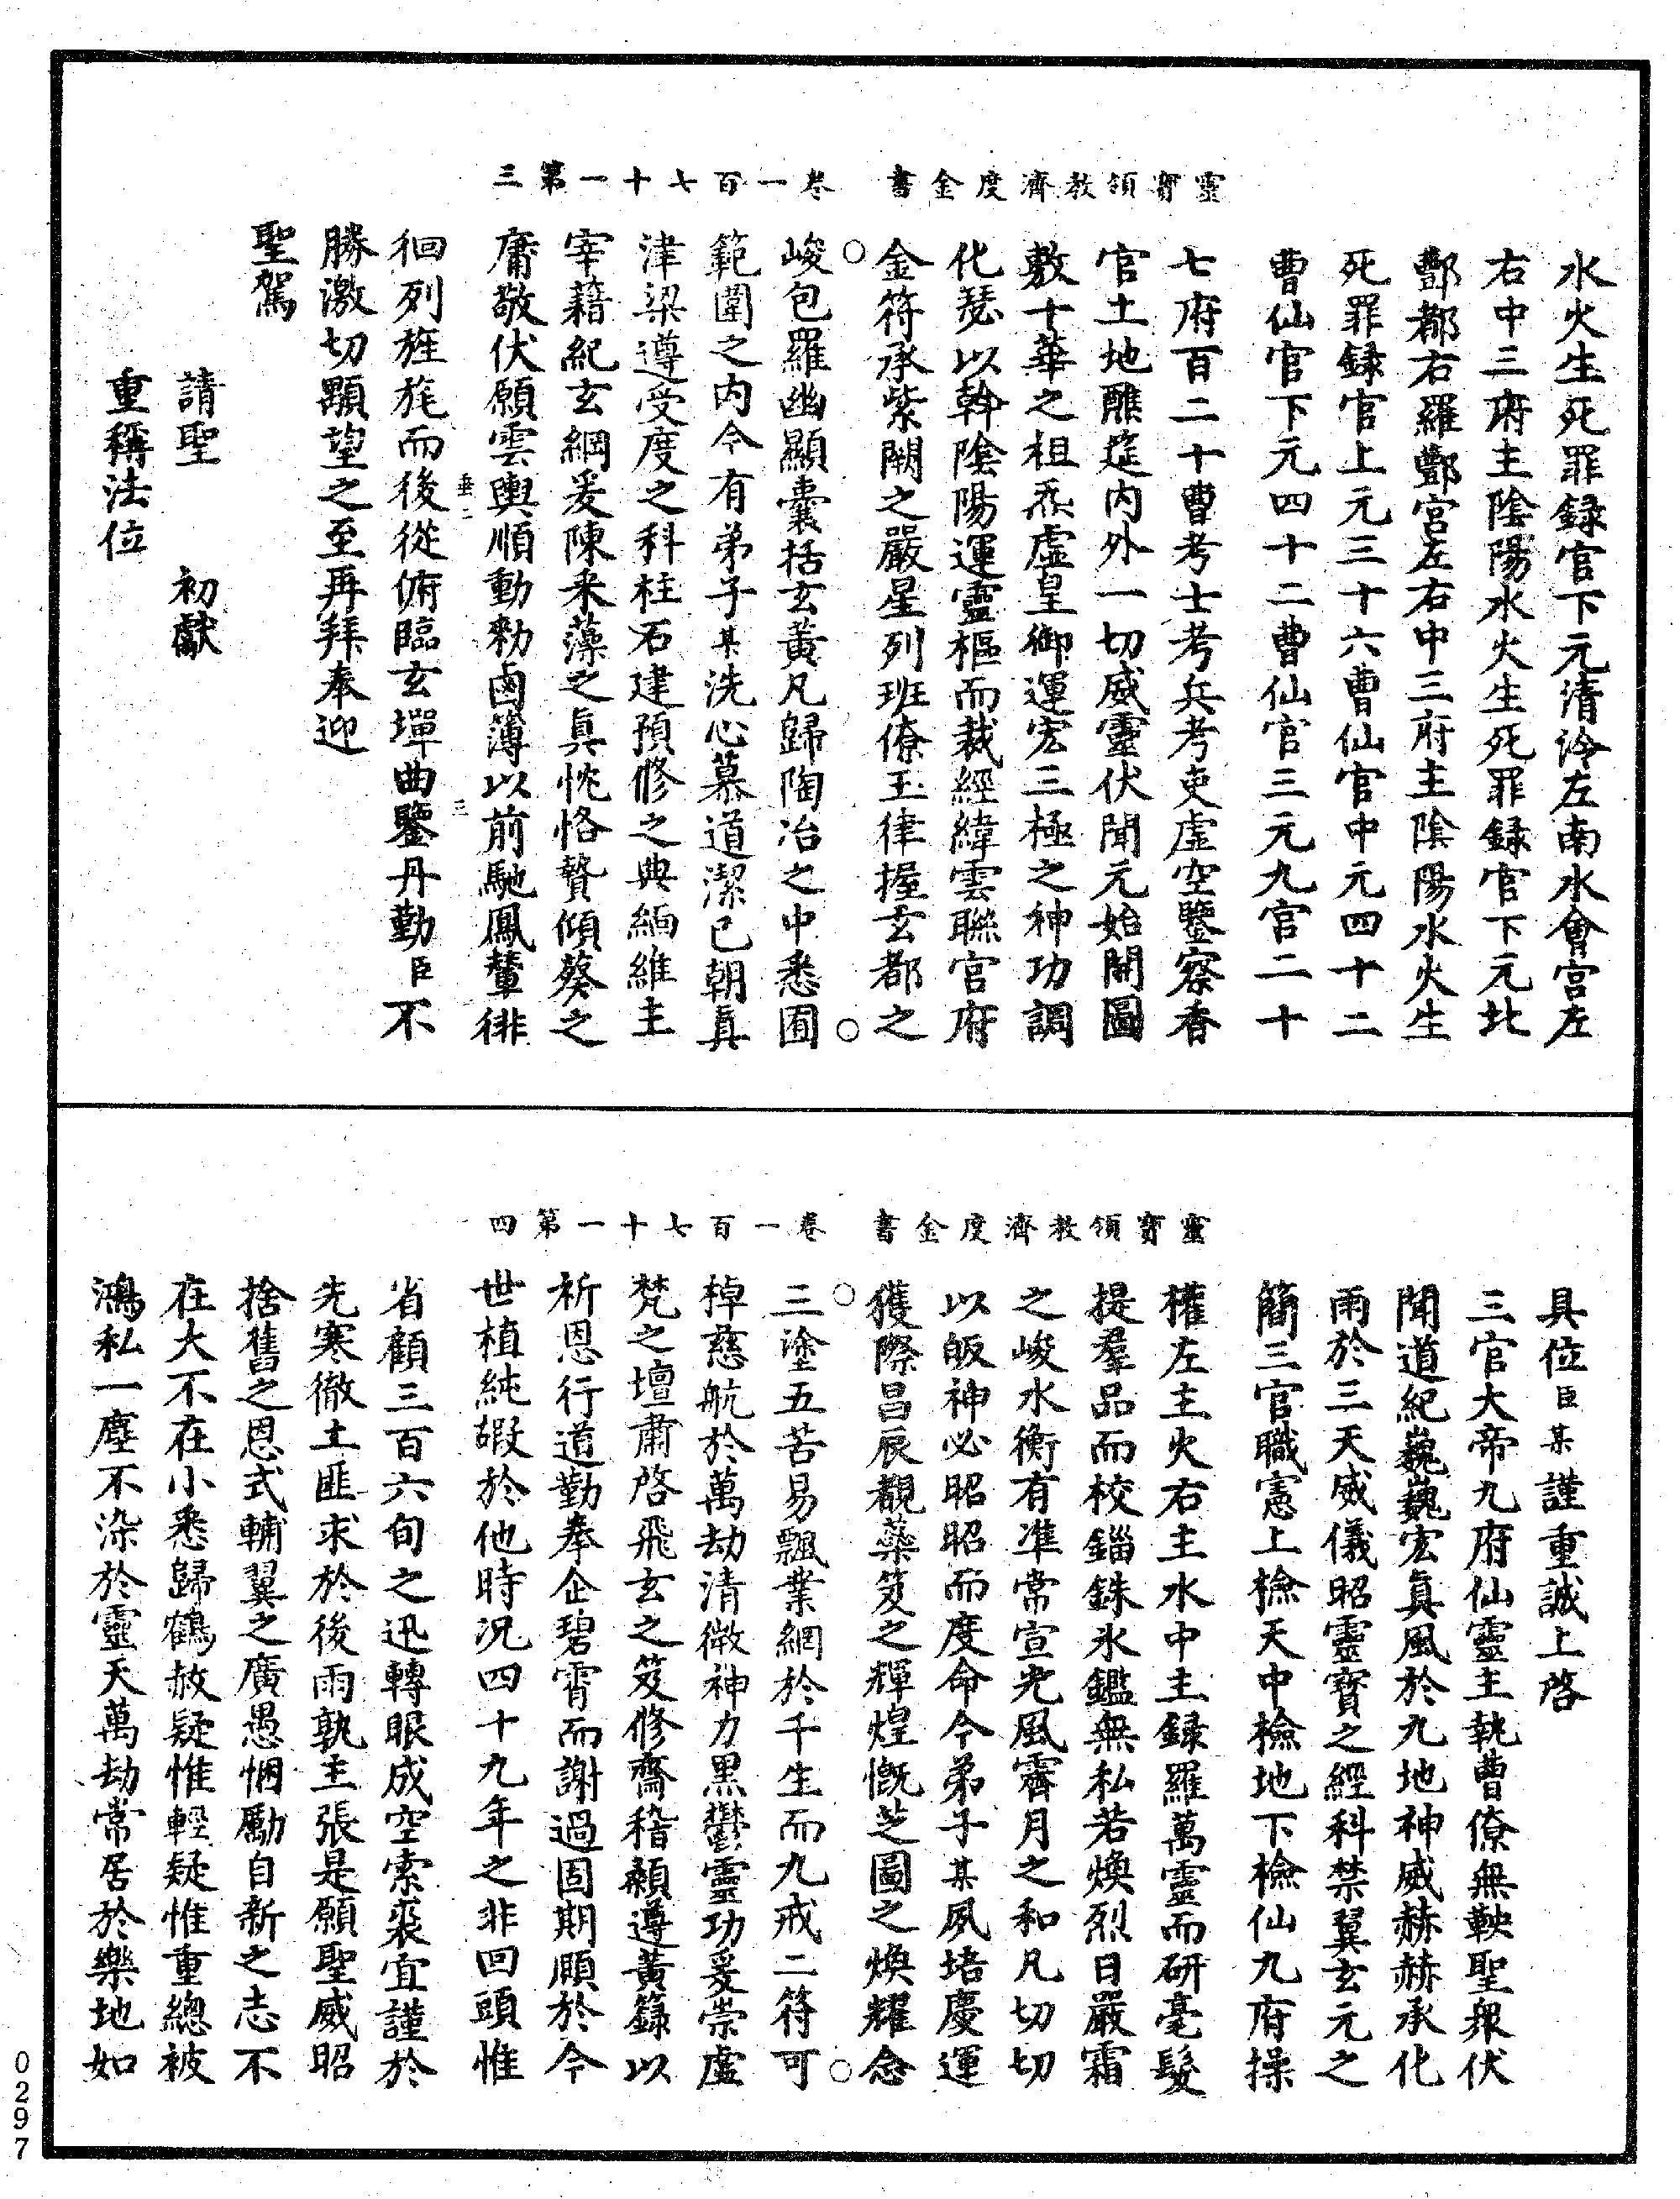 水火生死罪録官下元清泠左南水會宮左
右中三府主陰陽水火生死罪録官下元北
酆都右羅酆宮左右中三府主陰陽水火生
死罪録官上元三十六曹仙官中元四十二
曹仙官下元四十二曹仙官三元九宮二十
七府百二十曹考士考兵考吏虛空鑒察香
官土地醮筵內外一切威靈伏聞元始開圖
敷十華之祖炁虛皇御運宏三極之神功調
化瑟以斡陰陽運靈樞而裁經緯雲聯宮府
金符承紫闕之嚴星列班僚玉律握玄都之
靈寶領教濟度金書
卷一百七十一第三
峻包羅幽顯囊括玄黃凡歸陶冶之中悉囿
範圍之內今有弟子某洗心慕道潔己朝真
津梁遵受度之科柱石建預修之典緬維主
宰藉紀玄綱爰陳来藻之真恍恪贄傾葵之
庸敬伏願雲輿順動勑鹵簿以前馳鳳輦徘
垂二
三
徊列旌旄而後從俯臨玄墠曲鑒丹勤臣不
勝激切顒望之至再拜奉迎
聖駕
請聖 初獻
重稱法位
具位臣某謹重誠上啓
三官大帝九府仙靈主執曹僚無鞅聖衆伏
聞道紀巍巍宏真風於九地神威赫赫承化
雨於三天威儀昭靈寶之經科禁翼玄元之
簡三官職憲上檢天中檢地下檢仙九府操
權左主火右主水中主録羅萬靈而研毫髮
提羣品而校錙銖氷鑑無私若煥烈日嚴霜
之峻水衡有准常宣光風霽月之和凡切切
以皈神必昭昭而度命今弟子某夙培慶運
獲際昌辰覩蘂笈之輝煌慨芝圖之煥耀念
靈寶領教濟度金書
卷一百七十一第四
三塗五苦易飄業網於千生而九戒二符可
棹慈航於萬劫清微神力黑鬱靈功爰崇虛
梵之壇肅啓飛玄之笈修齋稽顙遵黃籙以
祈恩行道勤奉企碧霄而謝過固期願於今
世植純嘏於他時況四十九年之非回頭惟
省顧三百六旬之迅轉眼成空索裘宜謹於
先寒徹土匪求於後雨孰主張是願聖威昭
捨舊之恩式輔翼之廣愚悃勵自新之志不
在大不在小悉歸鶴赦疑惟輕疑惟重總被
鴻私一塵不染於靈天萬劫常居於樂地如
0297